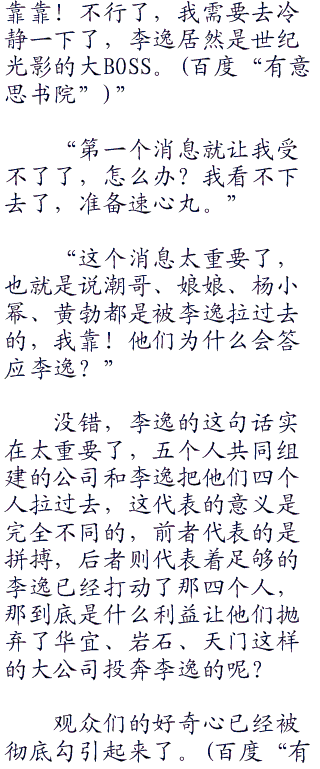 靠靠！不行了，我需要去冷
静一下了，李逸居然是世纪
光影的大BOSS。(百度“有意
思书院”)”
“第一个消息就让我受
不了了，怎么办？我看不下
去了，准备速心丸。”
“这个消息太重要了，
也就是说潮哥、娘娘、杨小
幂、黄勃都是被李逸拉过去
的，我靠！他们为什么会答
应李逸？”
没错，李逸的这句话实
在太重要了，五个人共同组
建的公司和李逸把他们四个
人拉过去，这代表的意义是
完全不同的，前者代表的是
拼搏，后者则代表着足够的
李逸已经打动了那四个人，
那到底是什么利益让他们抛
弃了华宜、岩石、天门这样
的大公司投奔李逸的呢？
观众们的好奇心已经被
彻底勾引起来了。(百度“有